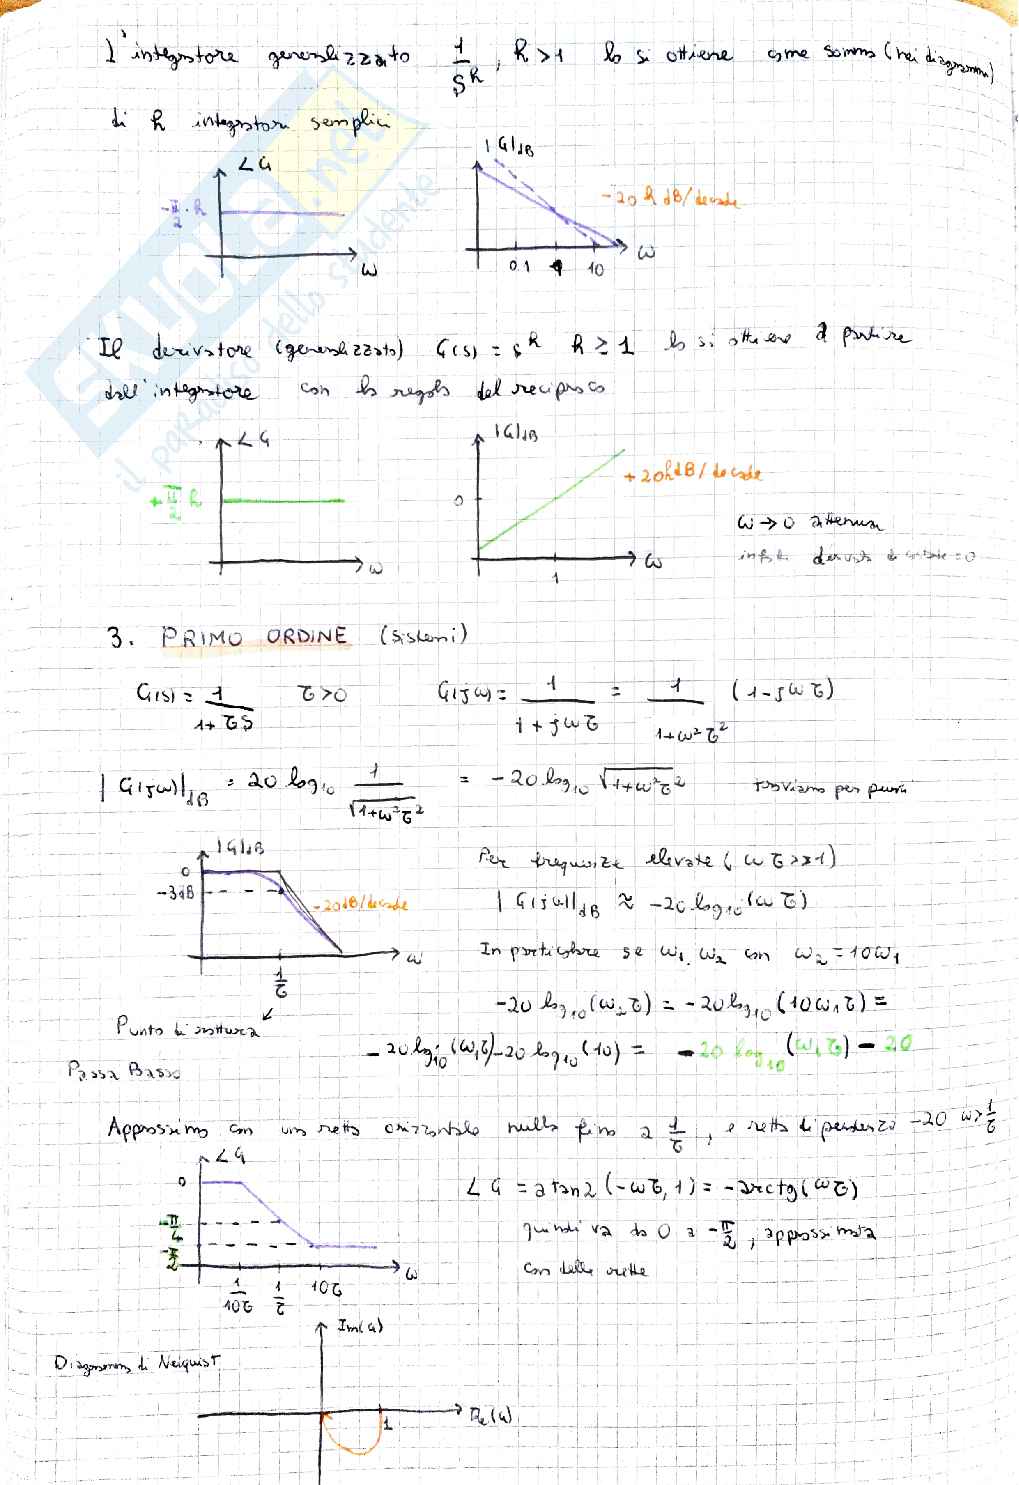 L'integratore generalizzato 1/S^h, h>1 lo si ottiene come somma (nei diagrammi)
di h integratori semplici
∠G
|G|dB
-π/2 · h
-20 h dB/decade
ω
0.1 1 10 ω
Il derivatore (generalizzato) G(s) = s^h h ≥ 1 lo si ottiene a partire
dall'integratore con la regola del reciproco
∠G
|G|dB
+π/2 h
0
+20h dB/decade
ω
1
ω
ω→0 attenua
infatti derivata di costante = 0
3. PRIMO ORDINE (sistemi)
G(s) = 1/(1+τS) τ>0 G(jω) = 1/(1+jωτ) = 1/(1+ω²τ²) (1-jωτ)
|G(jω)|dB = 20 log10 1/√(1+ω²τ²) = -20 log10 √(1+ω²τ²) troviamo per punti
|G|dB
0
-3dB
-20dB/decade
ω
1/τ
Punto di rottura
Passa Basso
Per frequenze elevate (ωτ>>1)
|G(jω)|dB ≈ -20 log10 (ωτ)
In particolare se ω1, ω2 con ω2 = 10ω1
-20 log10 (ω2τ) = -20 log10 (10ω1τ) =
-20 log10 (ω1τ) -20 log10 (10) = -20 log10 (ω1τ) - 20
Approssimo con una retta orizzontale nulla fino a 1/τ, e retta di pendenza -20 ω>1/τ
∠G
0
-π/4
-π/2
1/10τ 1/τ 10τ ω
∠G = atan2 (-ωτ, 1) = -arctg(ωτ)
quindi va da 0 a -π/2, approssimata
con delle rette
Diagramma di Neiquist
Im(G)
1
Re(G)
skuola.net
il paradiso dello studente